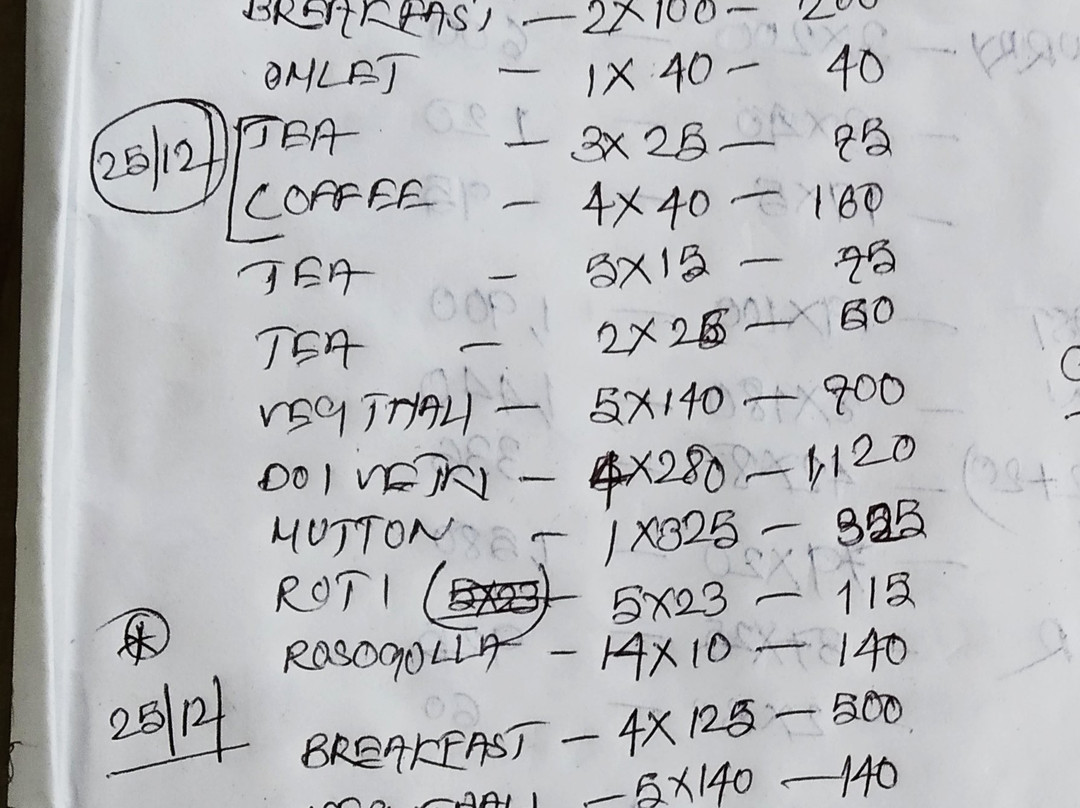 BREAKFAST — 2X100 — 200
OMLET — 1X 40 — 40
25/12 TEA — 3X 25 — 75
COFFEE — 4X40 — 160
TEA — 5X15 — 75
TEA — 2X25 — 50
VEG THALI — 5X140 — 700
DOI VETKI — 4X280 — 1,120
MUTTON — 1X325 — 325
ROTI (5X23) — 5X23 — 115
ROSOGOLLA — 14X10 — 140
25/12
BREAKFAST — 4X125 — 500
— 5X140 — 140